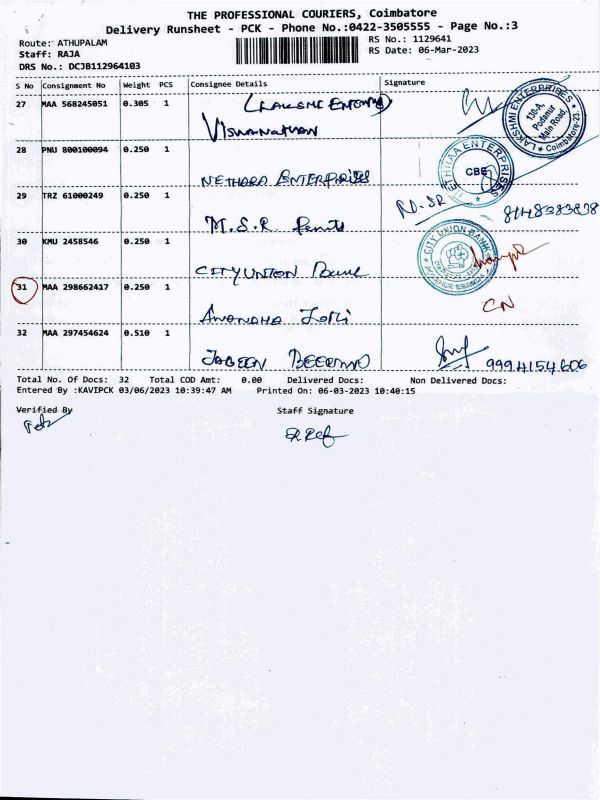 THE PROFESSIONAL COURIERS, Coimbatore
Delivery Runsheet - PCK - Phone No.:0422-3505555 - Page No.:3
Route: ATHUPALAM
RS No.: 1129641
Staff: RAJA
RS Date: 06-Mar-2023
DRS No.: DCJB112964103
S No Consignment No Weight PCS Consignee Details Signature
27 MAA 568245051 0.305 1 (Lakshmi Enterprises)
Viswanathan
LAKSHMI ENTERPRISES
130-A,
Podanur
Main Road,
Coimbatore-23
28 PNU 800100094 0.250 1
NETHRA ENTERPRISES
NETHRAA ENTERPRISES
CBE
29 TRZ 61000249 0.250 1
M.S.R Pants
8148383838
30 KMU 2458546 0.250 1
CITY UNION Bank
CITY UNION BANK
31 MAA 298662417 0.250 1
Anandha
CN
32 MAA 297454624 0.510 1
9994154606
Total No. Of Docs: 32 Total COD Amt: 0.00 Delivered Docs: Non Delivered Docs:
Entered By :KAVIPCK 03/06/2023 10:39:47 AM Printed On: 06-03-2023 10:40:15
Verified By
Staff Signature